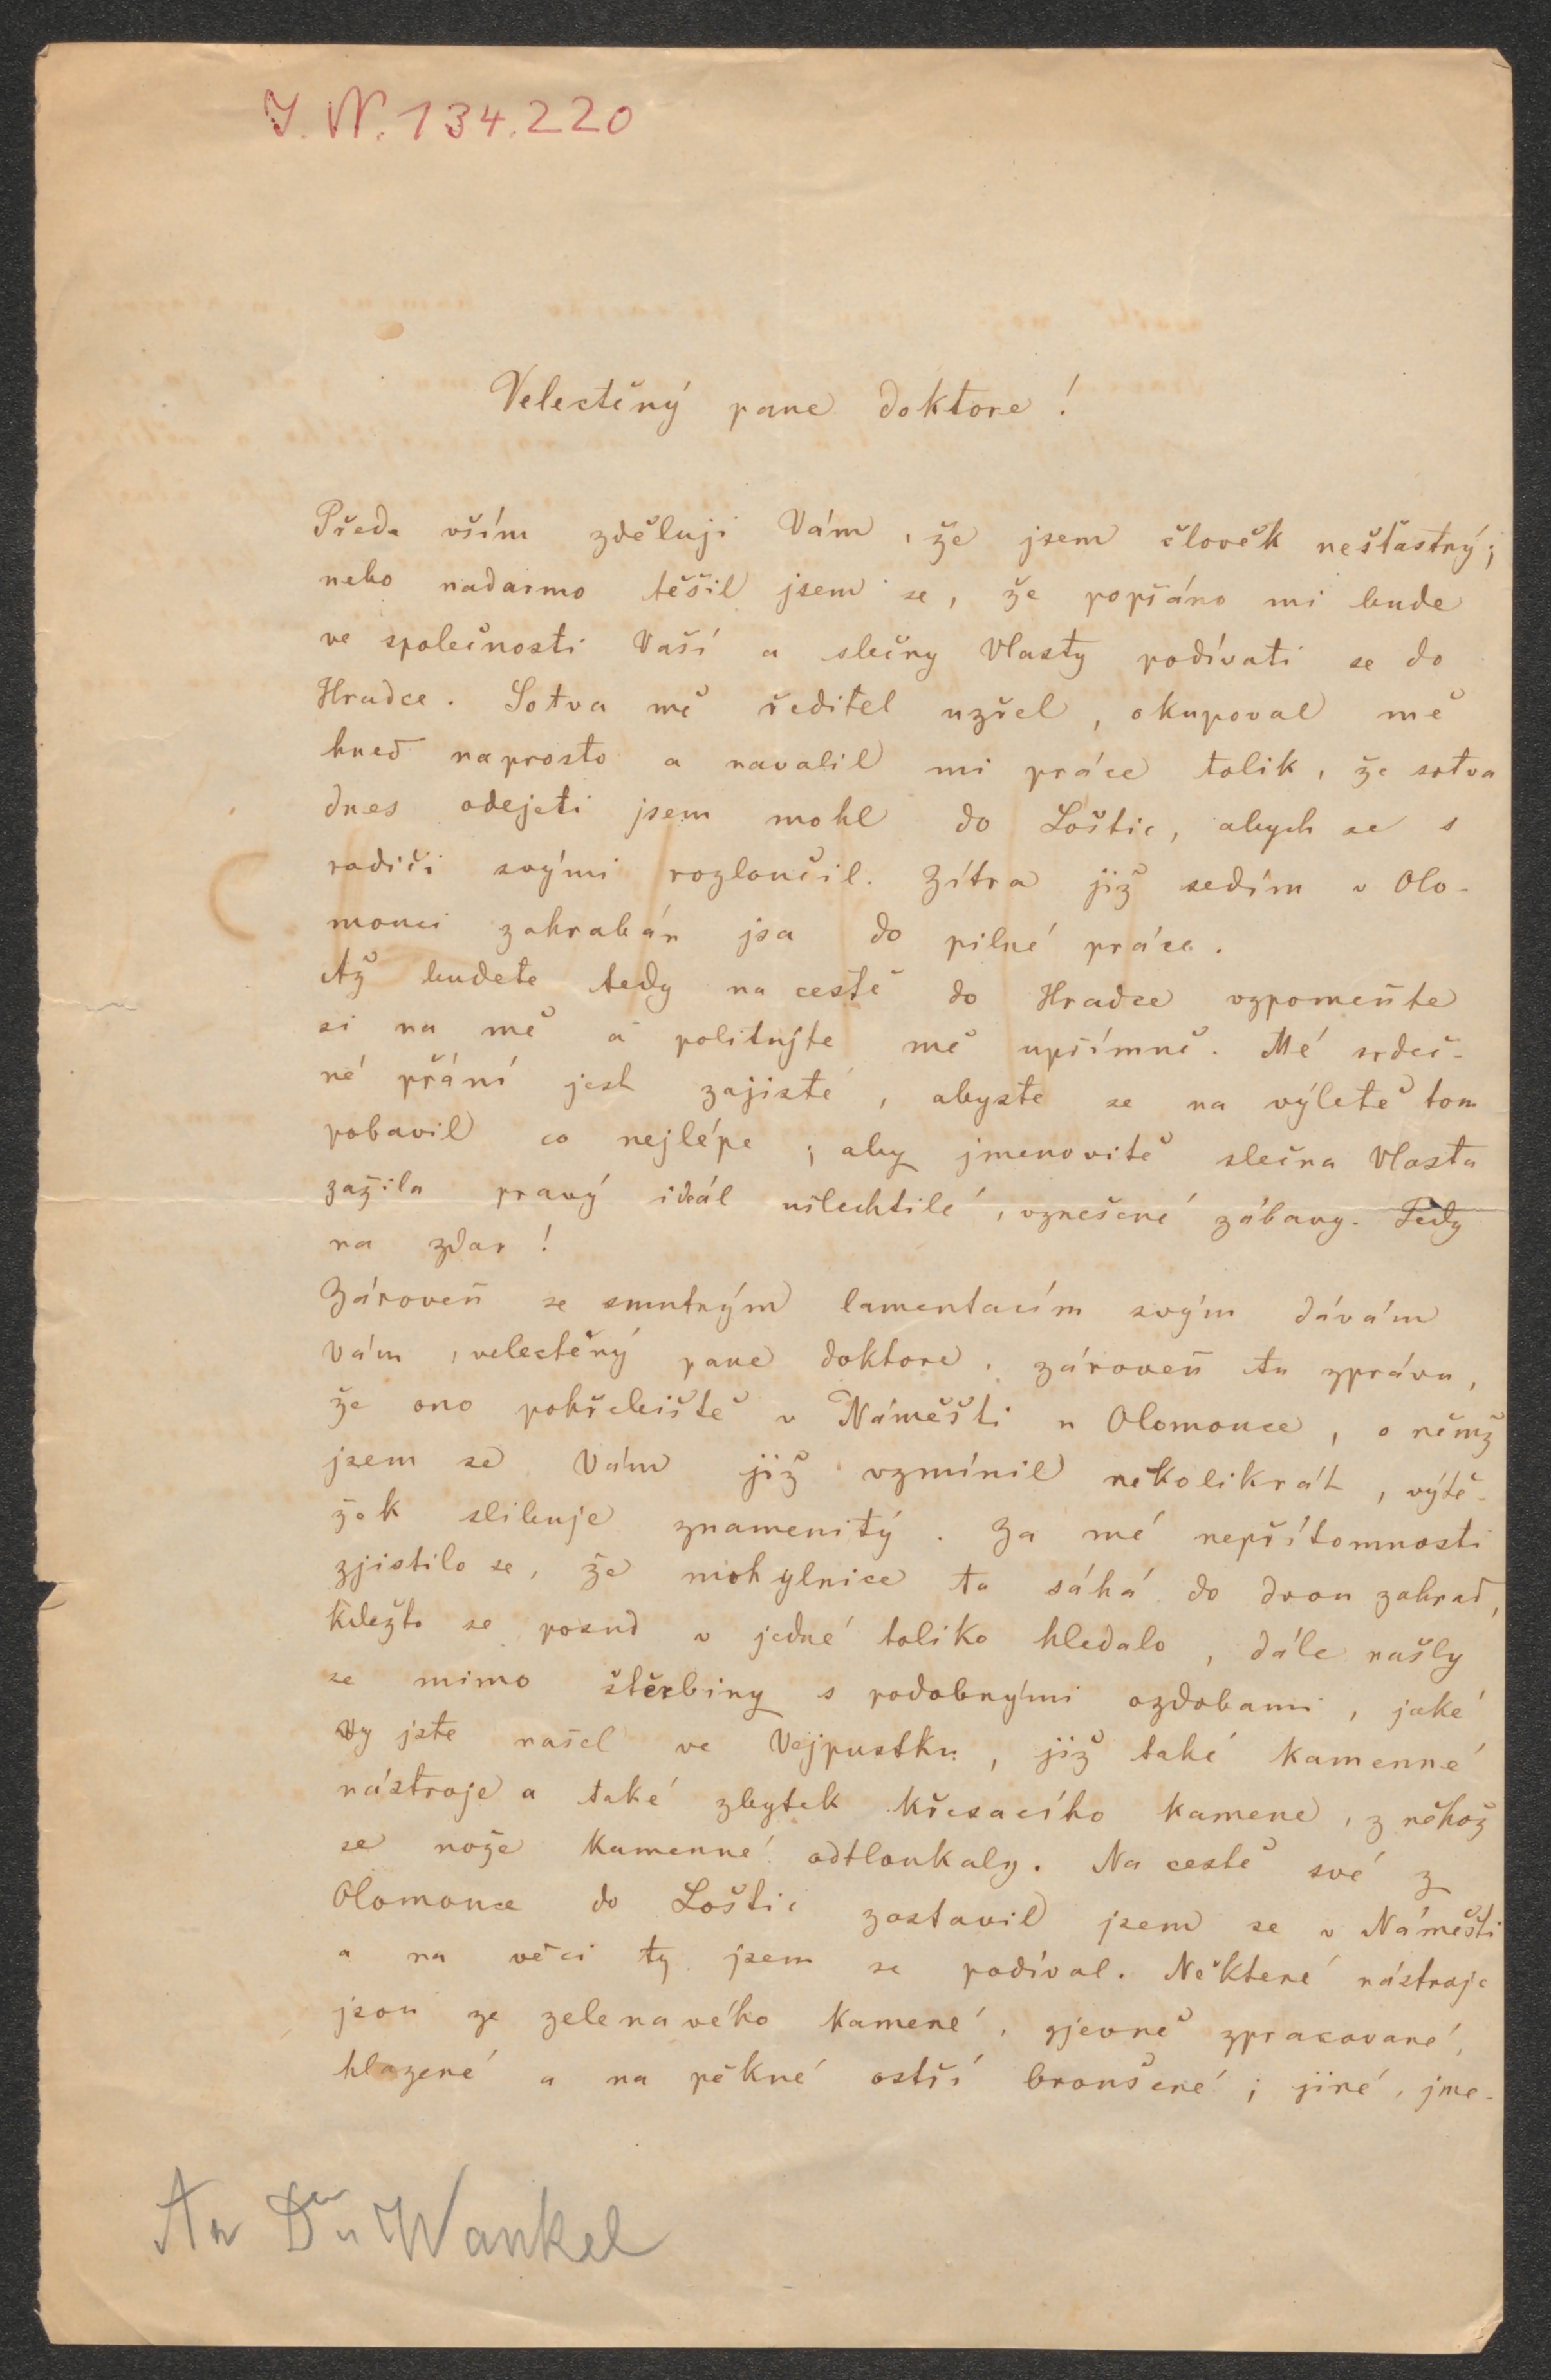 J. N. 134.220
Velectěný pane doktore!
Přede vším zděluji Vám, že jsem člověk nešťastný;
nebo nadarmo těšil jsem se, že popřáno mi bude
ve společnosti Vaší a slečny Vlasty podívati se do
Hradce. Sotva mě ředitel uzřel, okupoval mě
hned naprosto a navalil mi práce tolik, že sotva
dnes odejeti jsem mohl do Loštic, abych se s
rodiči svými rozloučil. Zítra již sedím v Olo-
mouci zahrabán jsa do pilné práce.
Až budete tedy na cestě do Hradce vzpomeňte
si na mě a politujte mě upřímně. Mé srdeč-
né přání jest zajisté, abyste se na výletě tom
pobavil co nejlépe; aby jmenovitě slečna Vlasta
zažila pravý ideál ušlechtilé, vznešené zábavy. Tedy
na zdar!
Zároveň se smutným lamentacím svým dávám
Vám, velectěný pane doktore, zároveň tu zprávu,
že ono pohřebiště v Náměšti u Olomouce, o němž
jsem se Vám již vzmínil několikrát, výtě-
žek slibuje znamenitý. Za mé nepřítomnosti
zjistilo se, že mohylnice ta sáhá do dvou zahrad,
kdežto se posud v jedné toliko hledalo, dále našly
se mimo štěrbiny s podobnými ozdobami, jaké
Vy jste našel ve Vejpustku, již také kamenné
nástroje a také zbytek křesacího kamene, z něhož
se nože kamenné odtloukaly. Na cestě své z
Olomouce do Loštic zastavil jsem se v Náměšti
a na věci ty jsem se podíval. Některé nástroje
jsou ze zelenavého kamene, zjevně zpracované,
hlazené a na pěkné ostří broušené; jiné, jme-
An Dr. Wankel